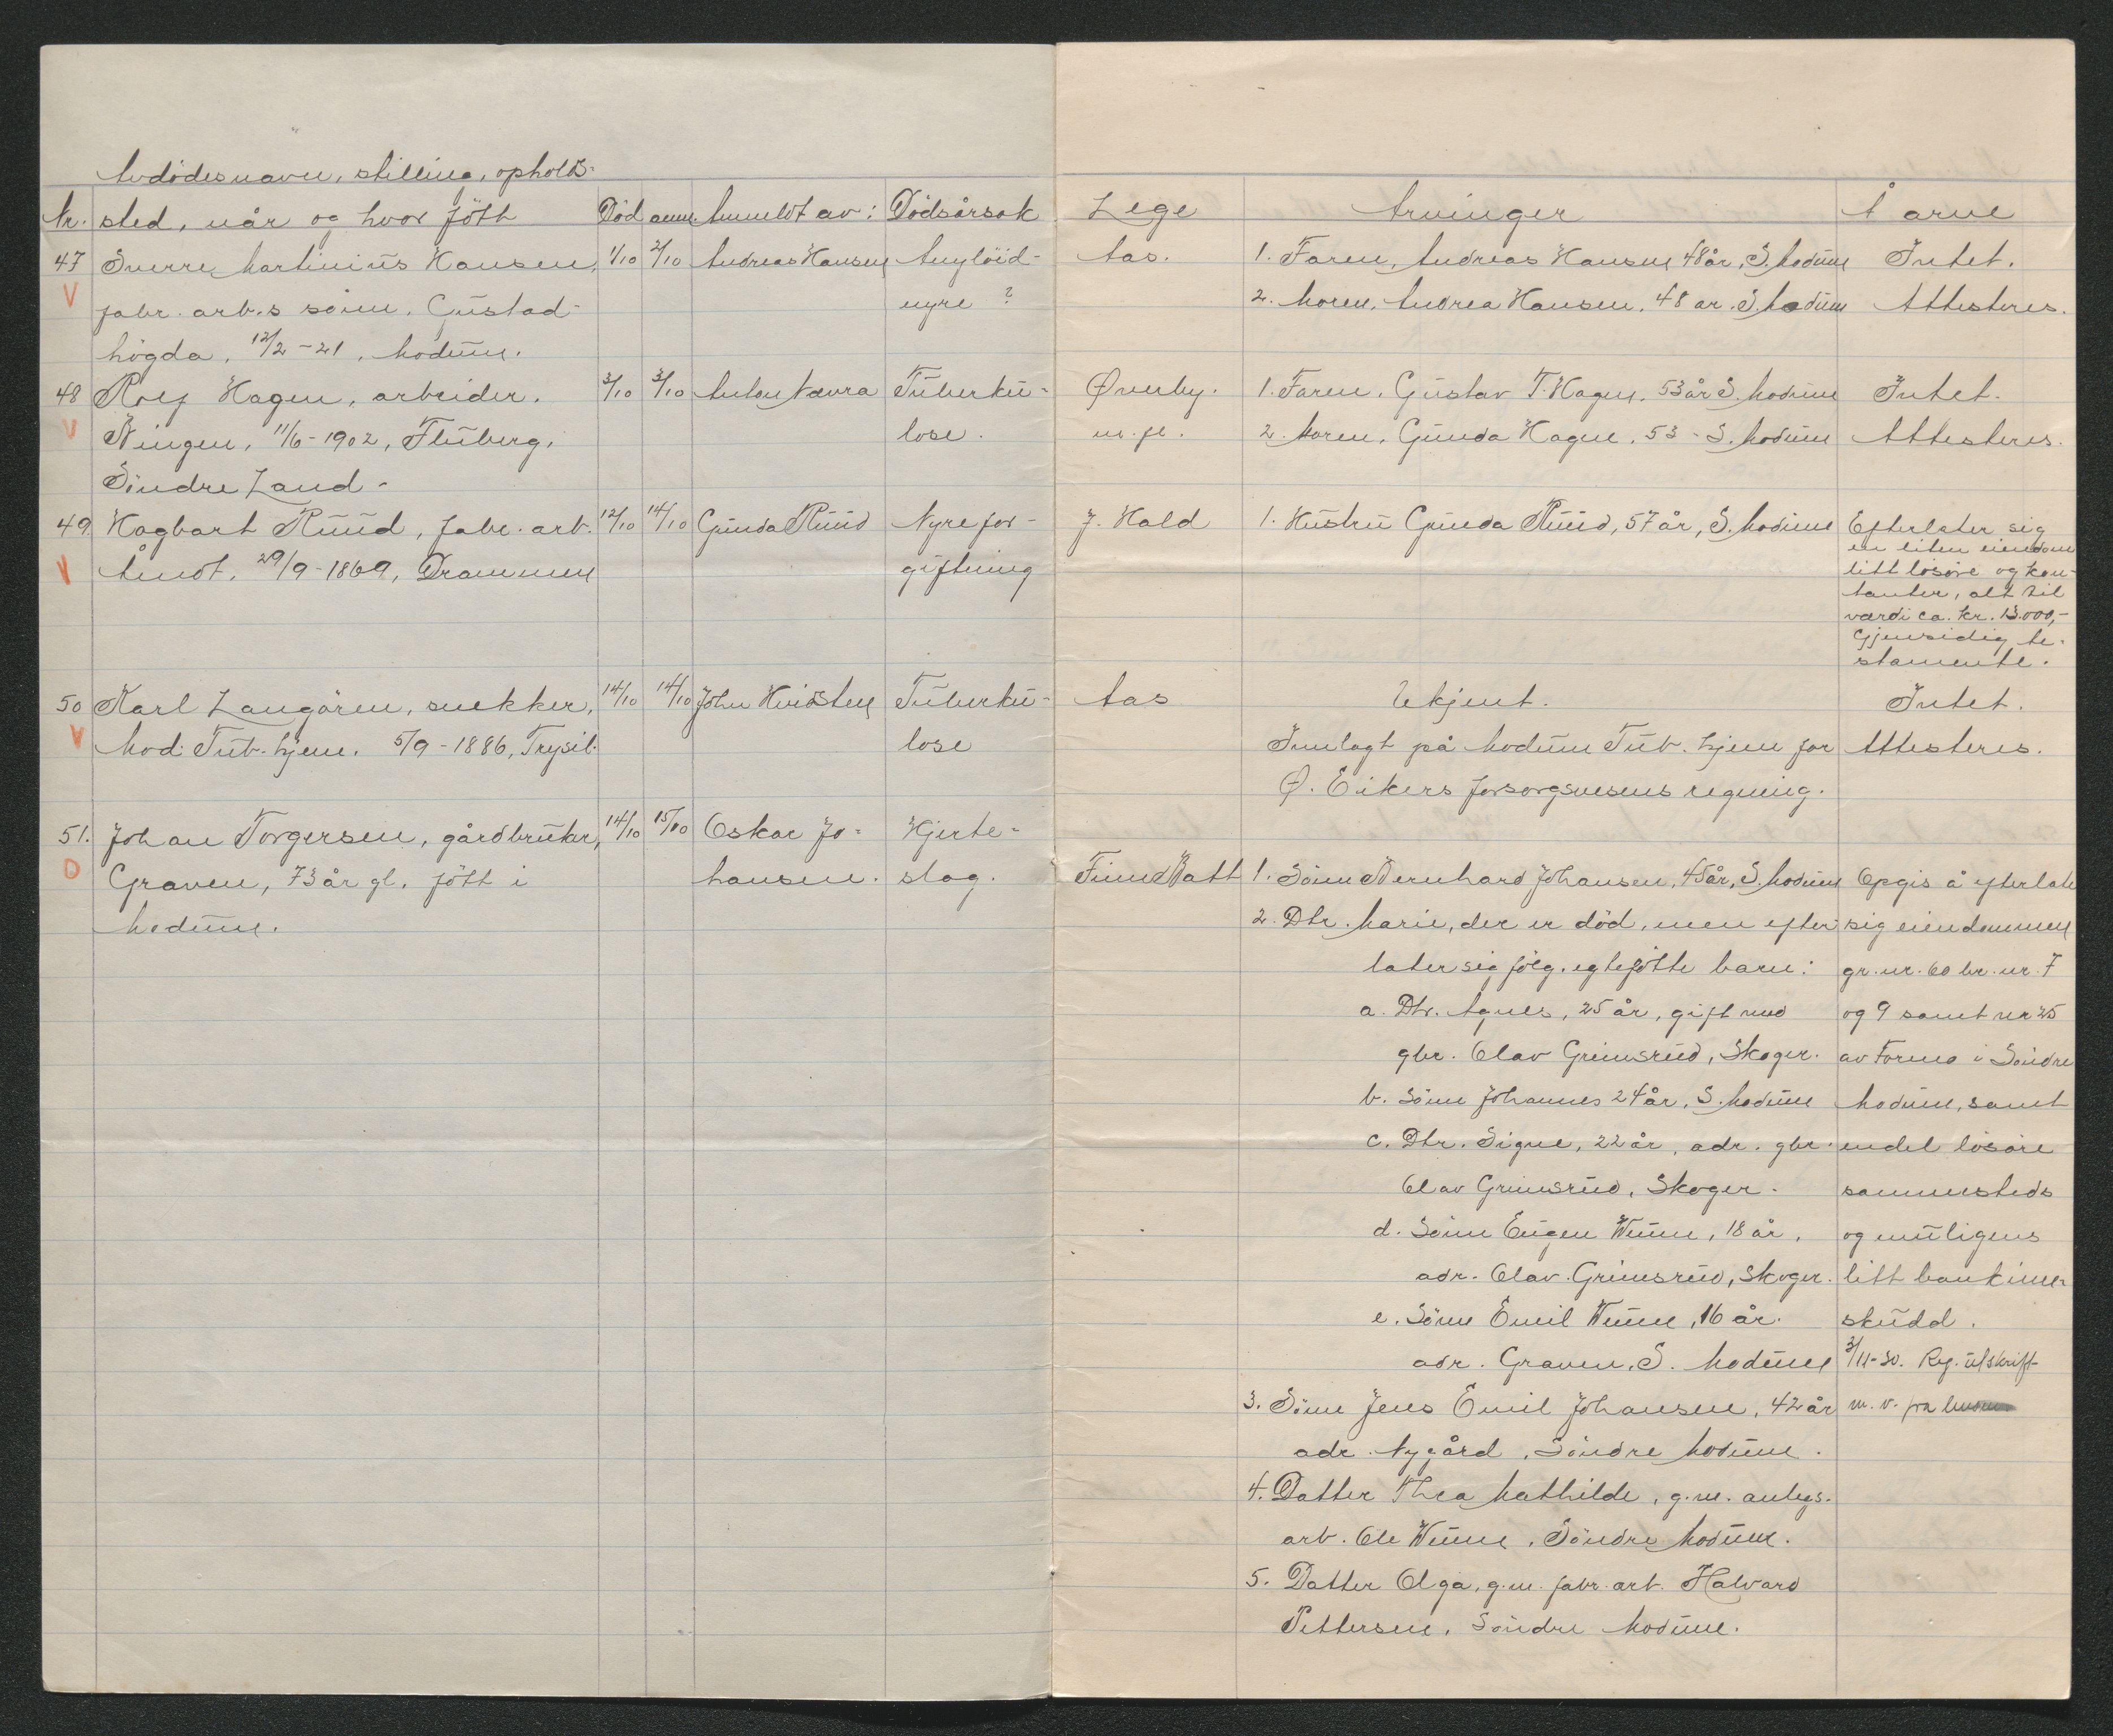 Avdödes navn, stilling, opholds-
Nr. sted, når og hvor født Död anm. Anmeldt av: Dödsårsak Lege Arvinger Å arve
47 Sverre Martinius Hansen, 1/10 2/10 Andreas Hansen Amyloid- Aas. 1. Faren, Andreas Hansen 48 år, S. Modum Intet.
V fabr. arb.s sönn, Gustad- nyre ? 2. Moren, Andrea Hansen, 48 år. S. Modum Attesteres.
högda, 12/2-21, Modum.
48 Rolf Hagen, arbeider. 3/10 3/10 Anton Nævra Tuberku- Øverby. 1. Faren, Gustav T. Hagen, 53 år S. Modum Intet.
V Vingen, 11/6-1902, Fluberg, lose. m. fl. 2. Moren, Gunda Hagen, 53 - S. Modum Attesteres.
Söndre Land -
49. Hagbart Ruud, fabr. arb. 12/10 14/10 Gunda Ruud Nyrefor- J. Hald 1. Hustru Gunda Ruud, 57 år, S. Modum Efterlater sig
en liten eiendom
V Åmot, 29/9-1869, Drammen giftning litt lösöre og kon-
tanter, alt til
værdi ca. kr. 13.000,-
Gjensidig te-
stamente.
50 Karl Langören, snekker, 14/10 14/10 John Hvidsten Tuberku- Aas Ukjent. Intet.
V Mod. Tub. hjem. 5/9-1886, Trysil. lose Innlagt på Modum Tub. hjem for Attesteres.
Ø. Eikers forsorgsvesens regning.
51. Johan Torgersen, gårdbruker, 14/10 15/10 Oskar Jo- Hjerte-
O Graven, 73 år gl. født i hansen. slag. Finn Batt 1. Sönn Bernhard Johansen, 45 år, S. Modum Opgis å efterlate
Modum. 2. Dtr. Marie, der er död, men efter- sig eiendommen
later sig følg. egtefødte barn: gr. nr. 60 br. nr. 7
a. Dtr. Agnes, 25 år, gift med og 9 samt nr 25
gbr. Olav Grimsrud, Skoger. av Formo i Söndre
b. Sönn Johannes 24 år, S. Modum Modum, samt
c. Dtr. Signe, 22 år, adr. gbr. endel lösöre
Olav Grimsrud, Skoger. sammesteds
d. Sönn Eugen Wünn, 18 år, og muligens
adr. Olav Grimsrud, Skoger. litt bankinn-
e. Sönn Emil Wünn, 16 år. skudd.
adr. Graven, S. Modum 3/11-30. Reg. utskrift
3. Sönn Jens Emil Johansen, 42 år m. v. fra
adr. Nygård, Söndre Modum.
4. Datter Thea Mathilde, g. m. anlegs.
arb. Ole Wünn, Söndre Modum.
5. Datter Olga, g. m. fabr. arb. Halvard
Pettersen, Söndre Modum.